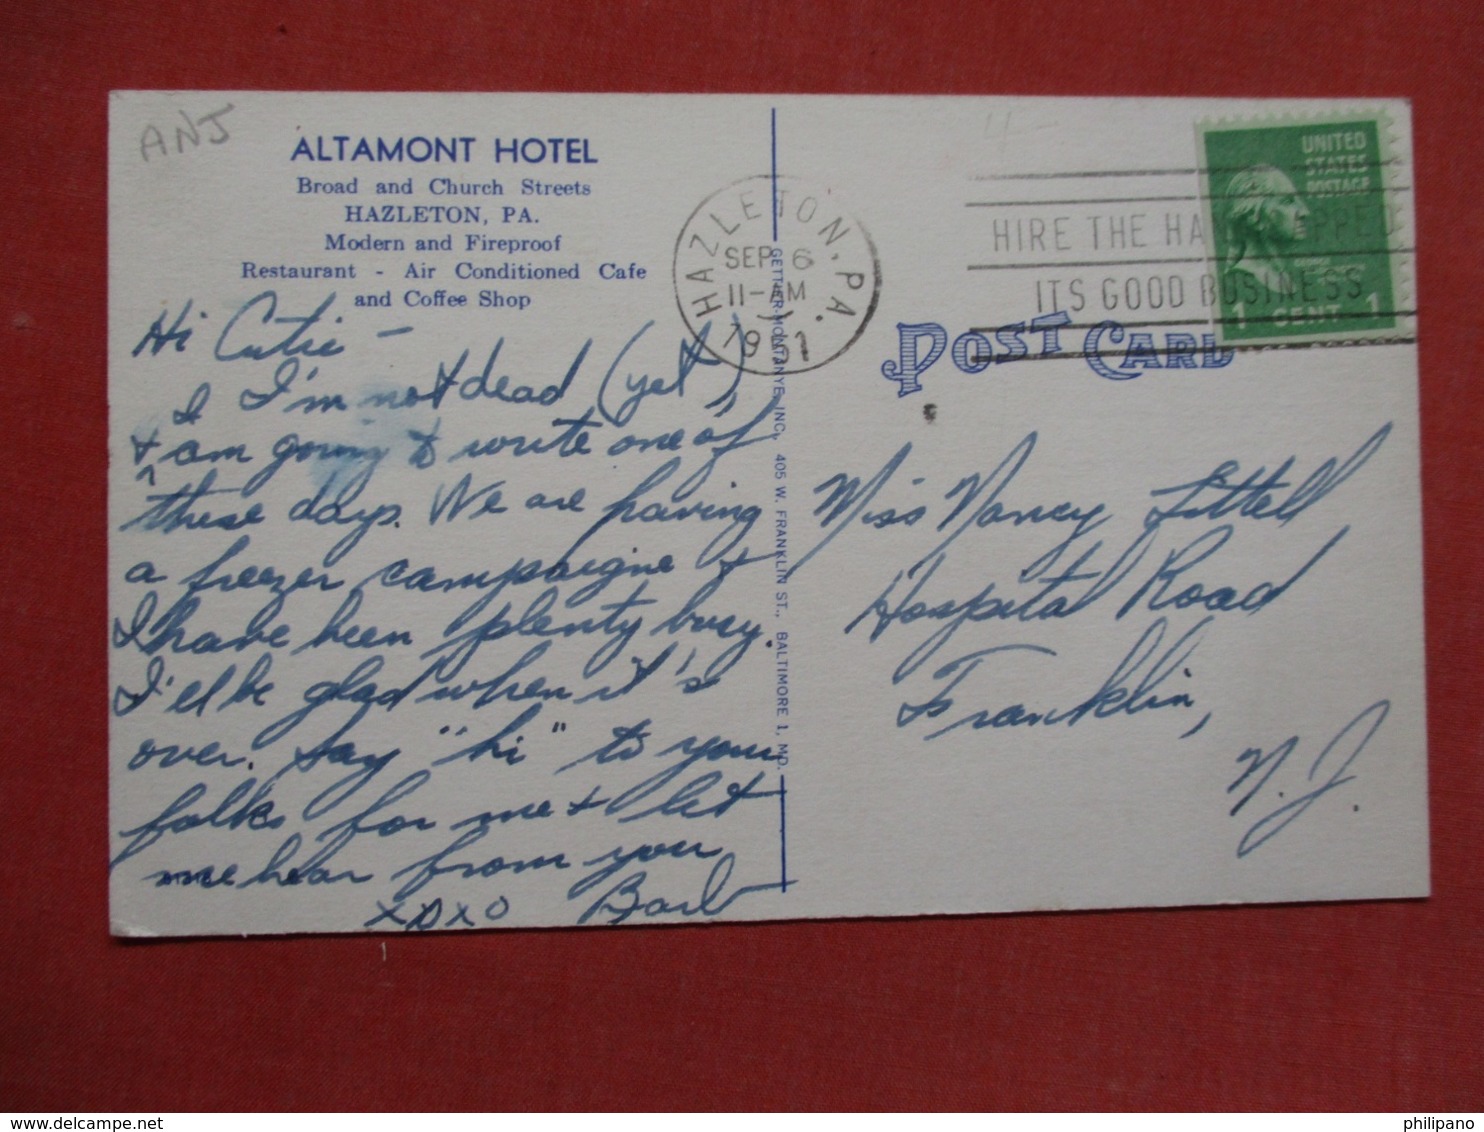 ANJ
ALTAMONT HOTEL
Broad and Church Streets
HAZLETON, PA.
Modern and Fireproof
Restaurant - Air Conditioned Cafe
and Coffee Shop
Hi Cutie -
I I'm not dead (yet)
& am going to write one of
these days. We are having
a freezer campaigne &
I have been plenty busy.
I'll be glad when it's
over. Say "hi" to your
folks for me & let
me hear from you
xoxo Barb
GETTIER-MONTANYE, INC., 405 W. FRANKLIN ST., BALTIMORE 1, MD.
HAZLETON, PA.
SEP 6
11-AM
1951
HIRE THE HANDICAPPED
ITS GOOD BUSINESS
UNITED
STATES
POSTAGE
1 CENT 1
POST CARD
Miss Nancy Littell
Hospital Road
Franklin,
N. J.
philipano